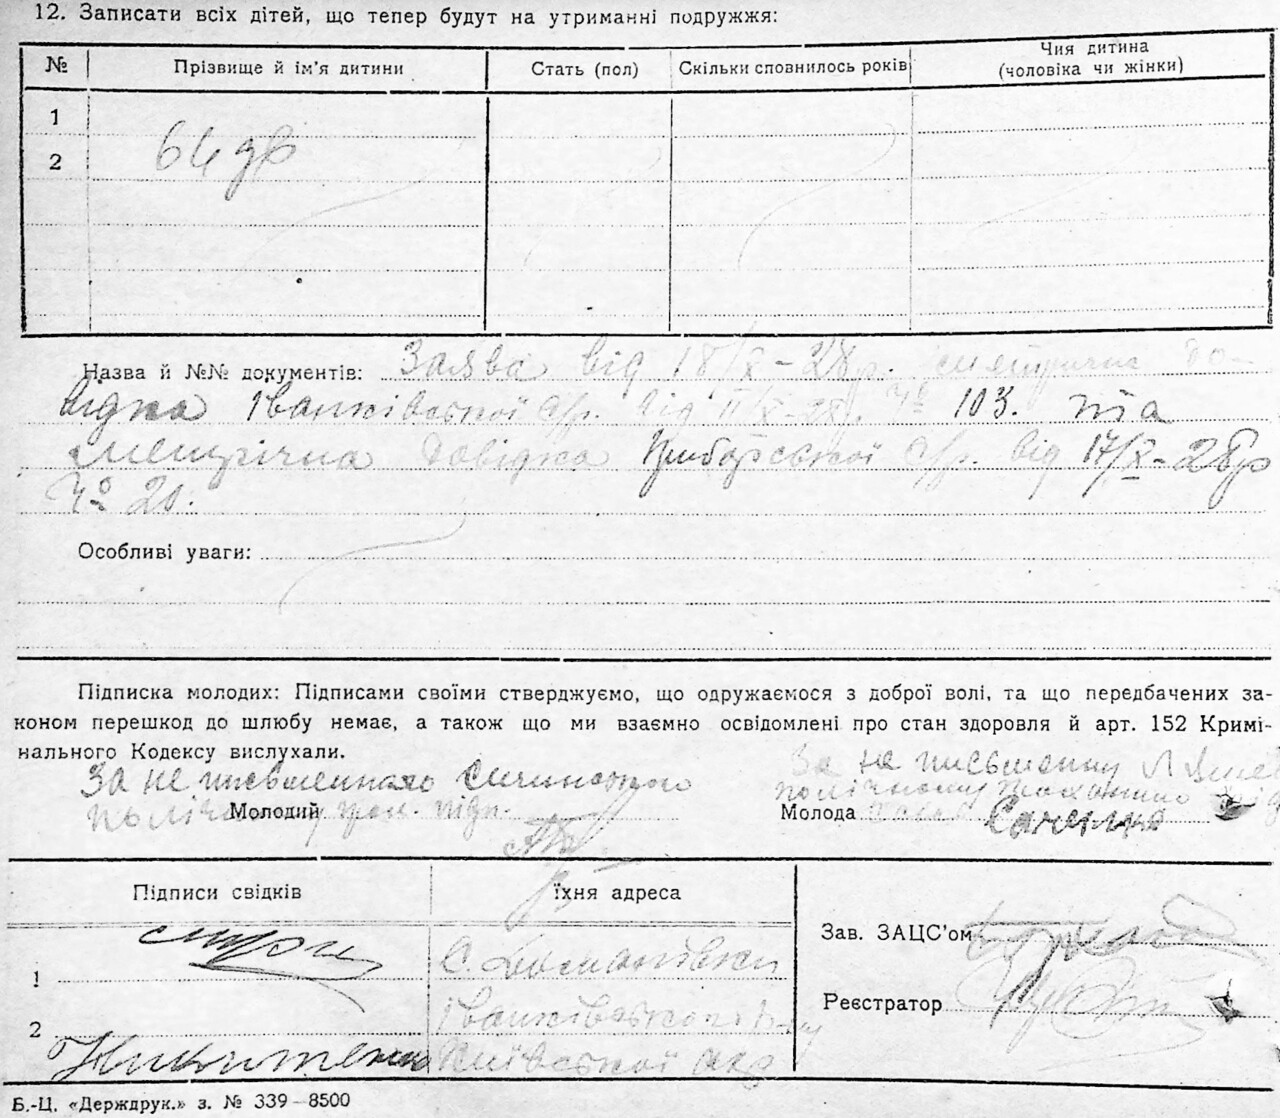 12. Записати всіх дітей, що тепер будут на утриманні подружжя:
№ Прізвище й ім'я дитини Стать (пол) Скільки сповнилось років Чия дитина (чоловіка чи жінки)
1
2
Назва й №№ документів: Заява від 18/X-28р. метрична до-
відка Іванківської с/р. від 11/X-28р. № 103. та
метрічна довідка Приборської с/р. від 17/X-28р
№ 20.
Особливі уваги:
Підписка молодих: Підписами своїми стверджуємо, що одружаємося з доброї волі, та що передбачених за-
коном перешкод до шлюбу немає, а також що ми взаємно освідомлені про стан здоровля й арт. 152 Кримі-
нального Кодексу вислухали.
За не письменного За не письменну
Молодий підп. Молода
Підписи свідків Їхня адреса
Зав. ЗАЦС'ом
1 с. Домановки
Реєстратор
2 Іванківського р-ну
Никитенко Київської окр
Б.-Ц. «Держдрук.» з. № 339—8500